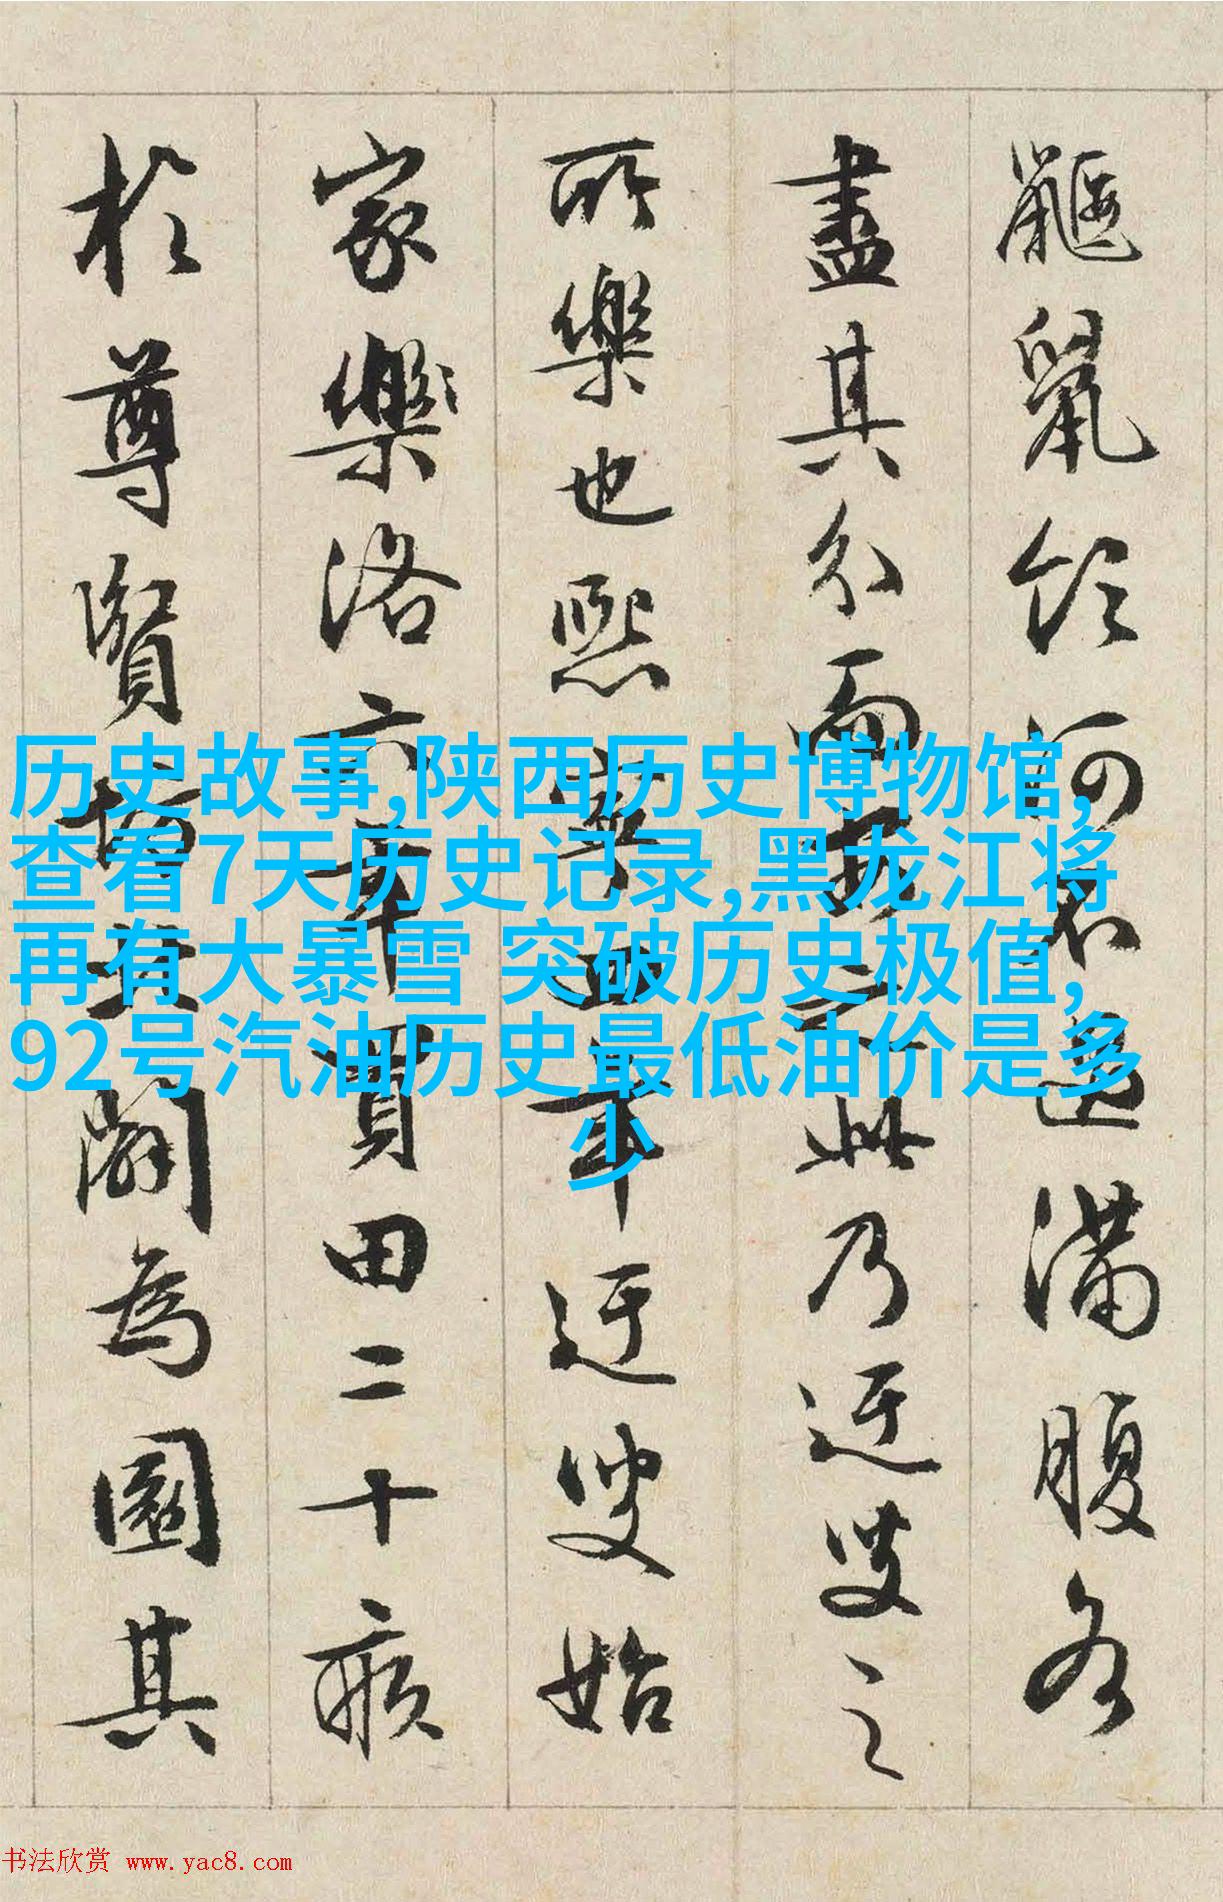 鼴鼠飲河不過滿腹各
盡其分而安之此乃迂叟之
所樂也熙寧四年迂叟始
家樂洛六年買田二十畝
於尊賢坊北闢為園其
历史故事,陕西历史博物馆,
查看7天历史记录,黑龙江将
再有大暴雪 突破历史极值,
92号汽油历史最低油价是多
少
书法欣赏 www.yac8.com